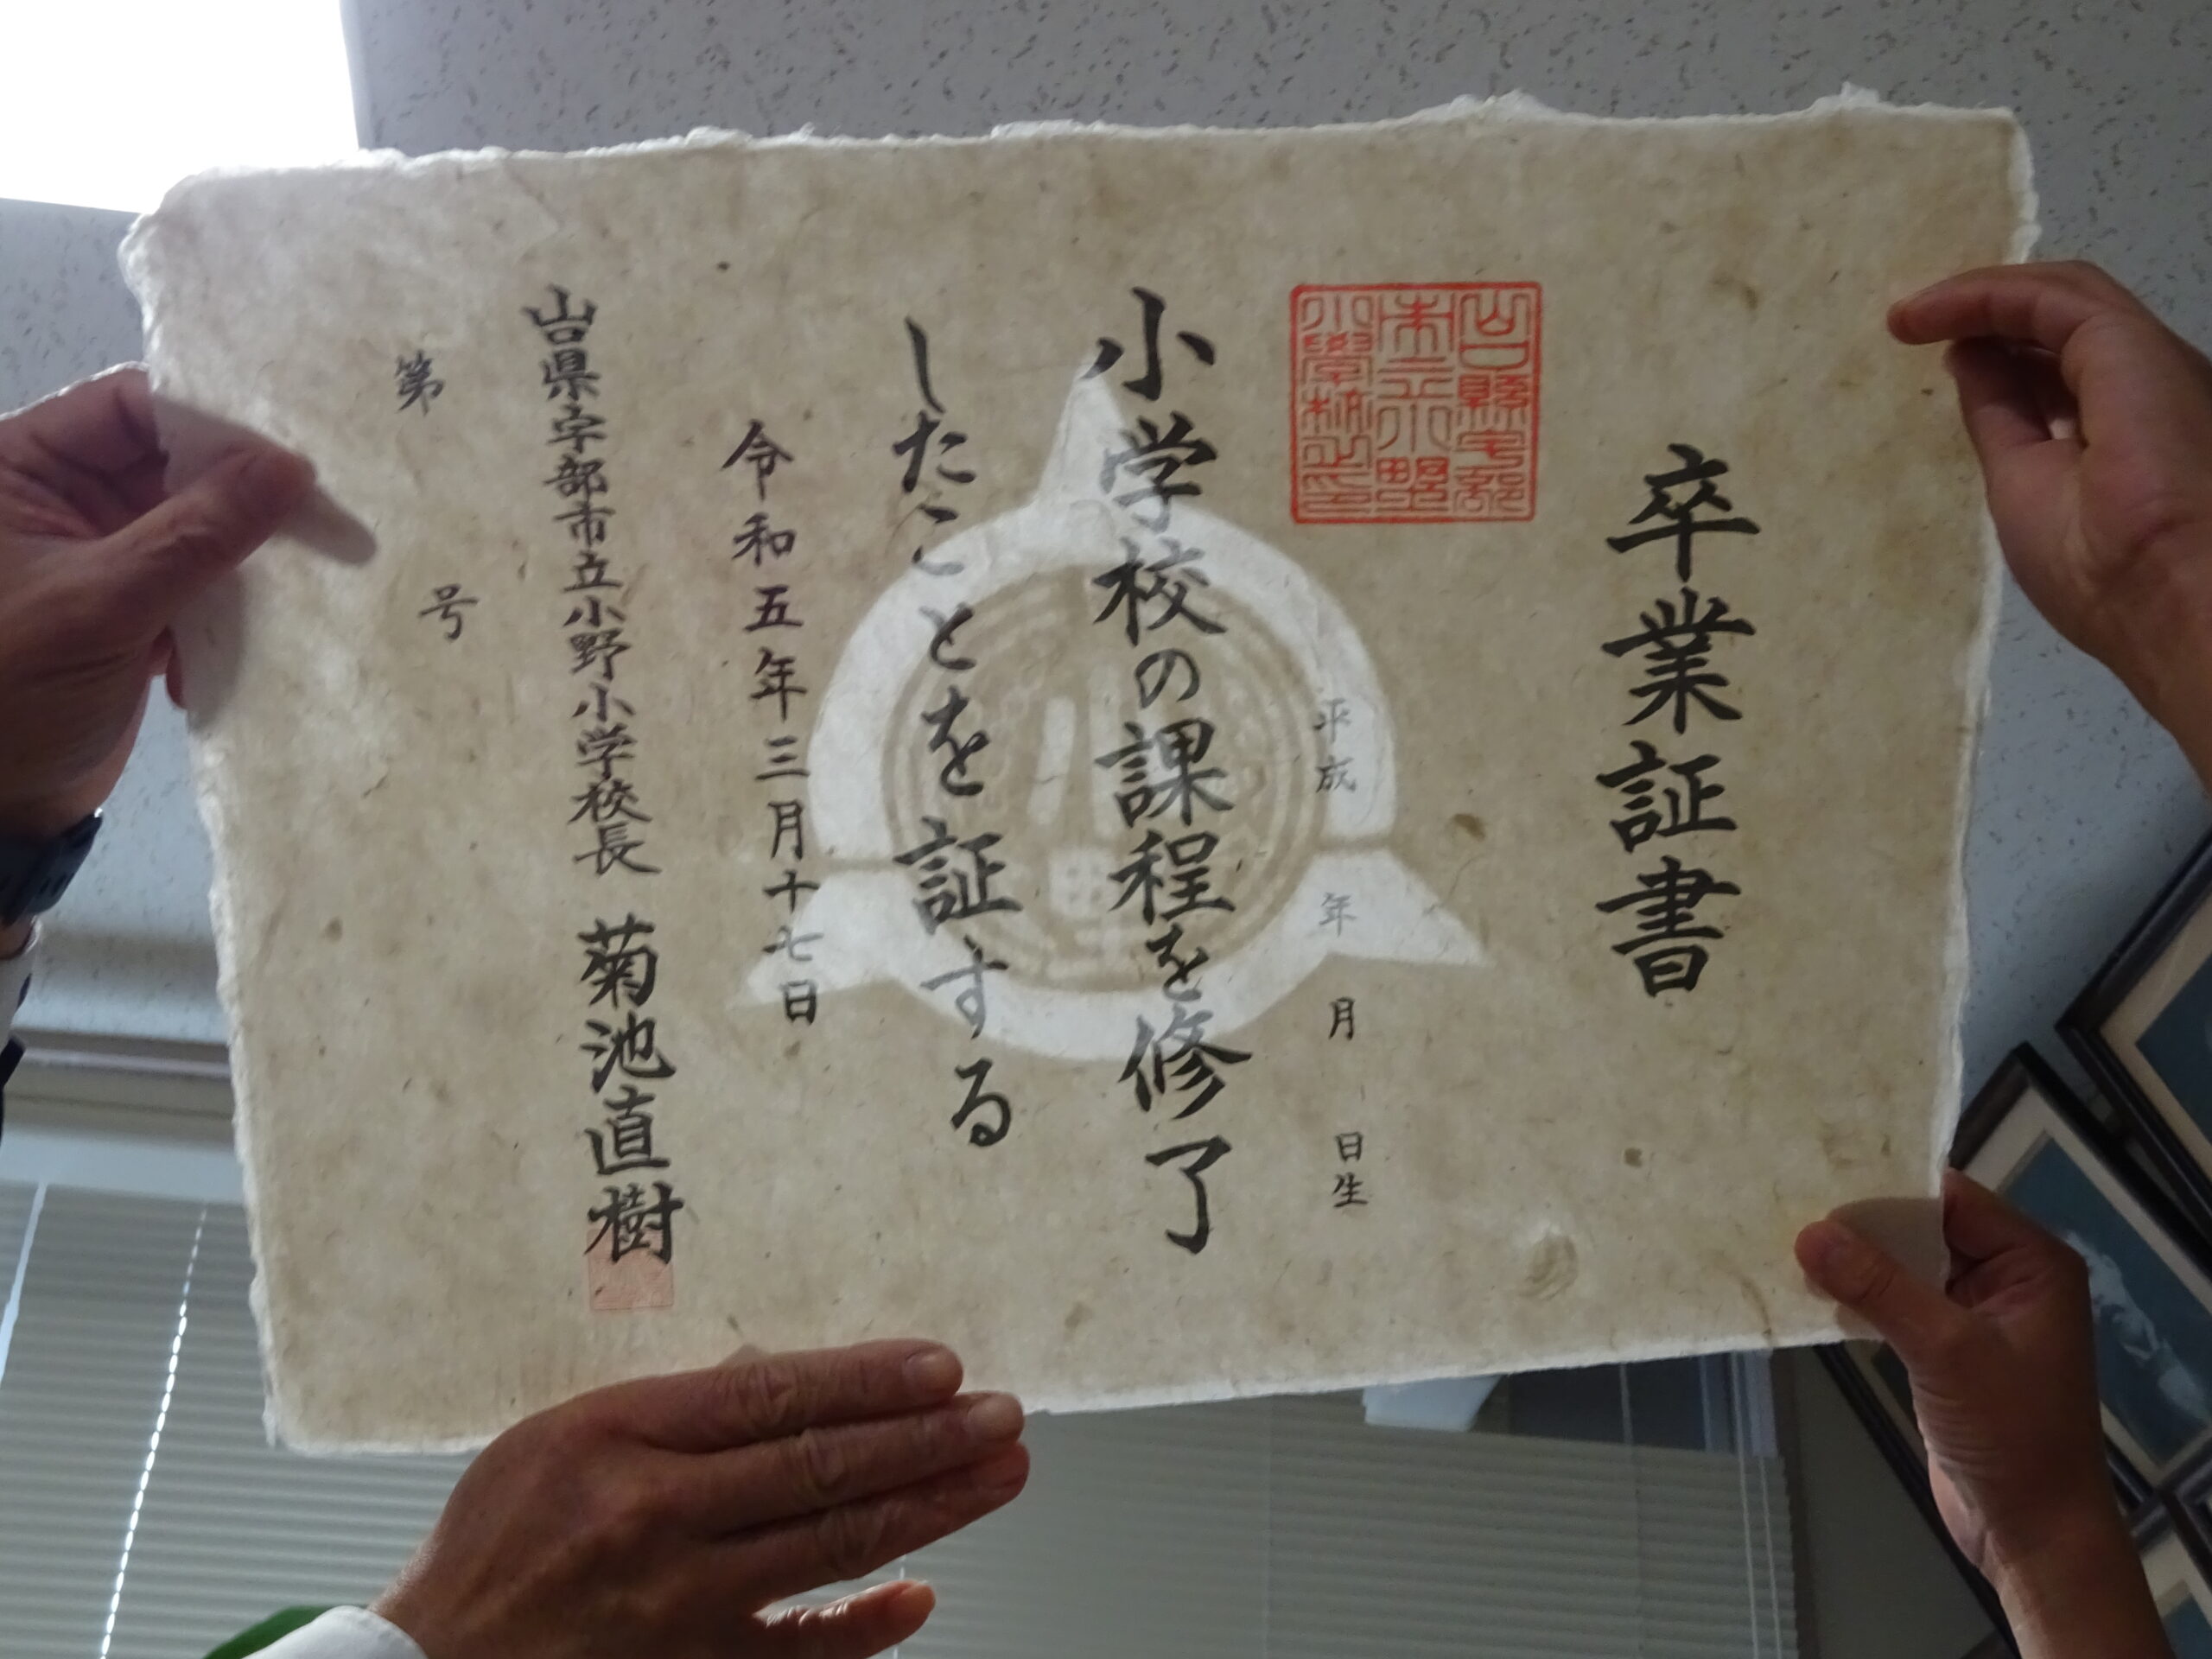 卒業証書
山口縣宇部
市立小野
小學校之印
平成 年 月 日生
小学校の課程を修了
したことを証する
令和五年三月十七日
山口県宇部市立小野小学校長 菊池直樹
第 号